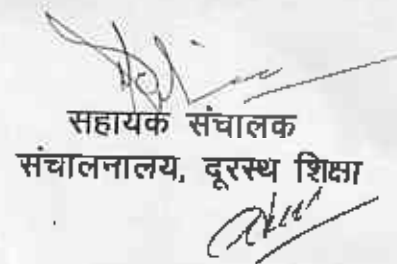 सहायक संचालक
संचालनालय, दूरस्थ शिक्षा